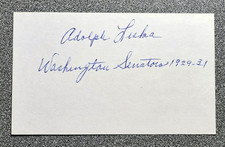 Adolph Liska
Washington Senators 1929-31